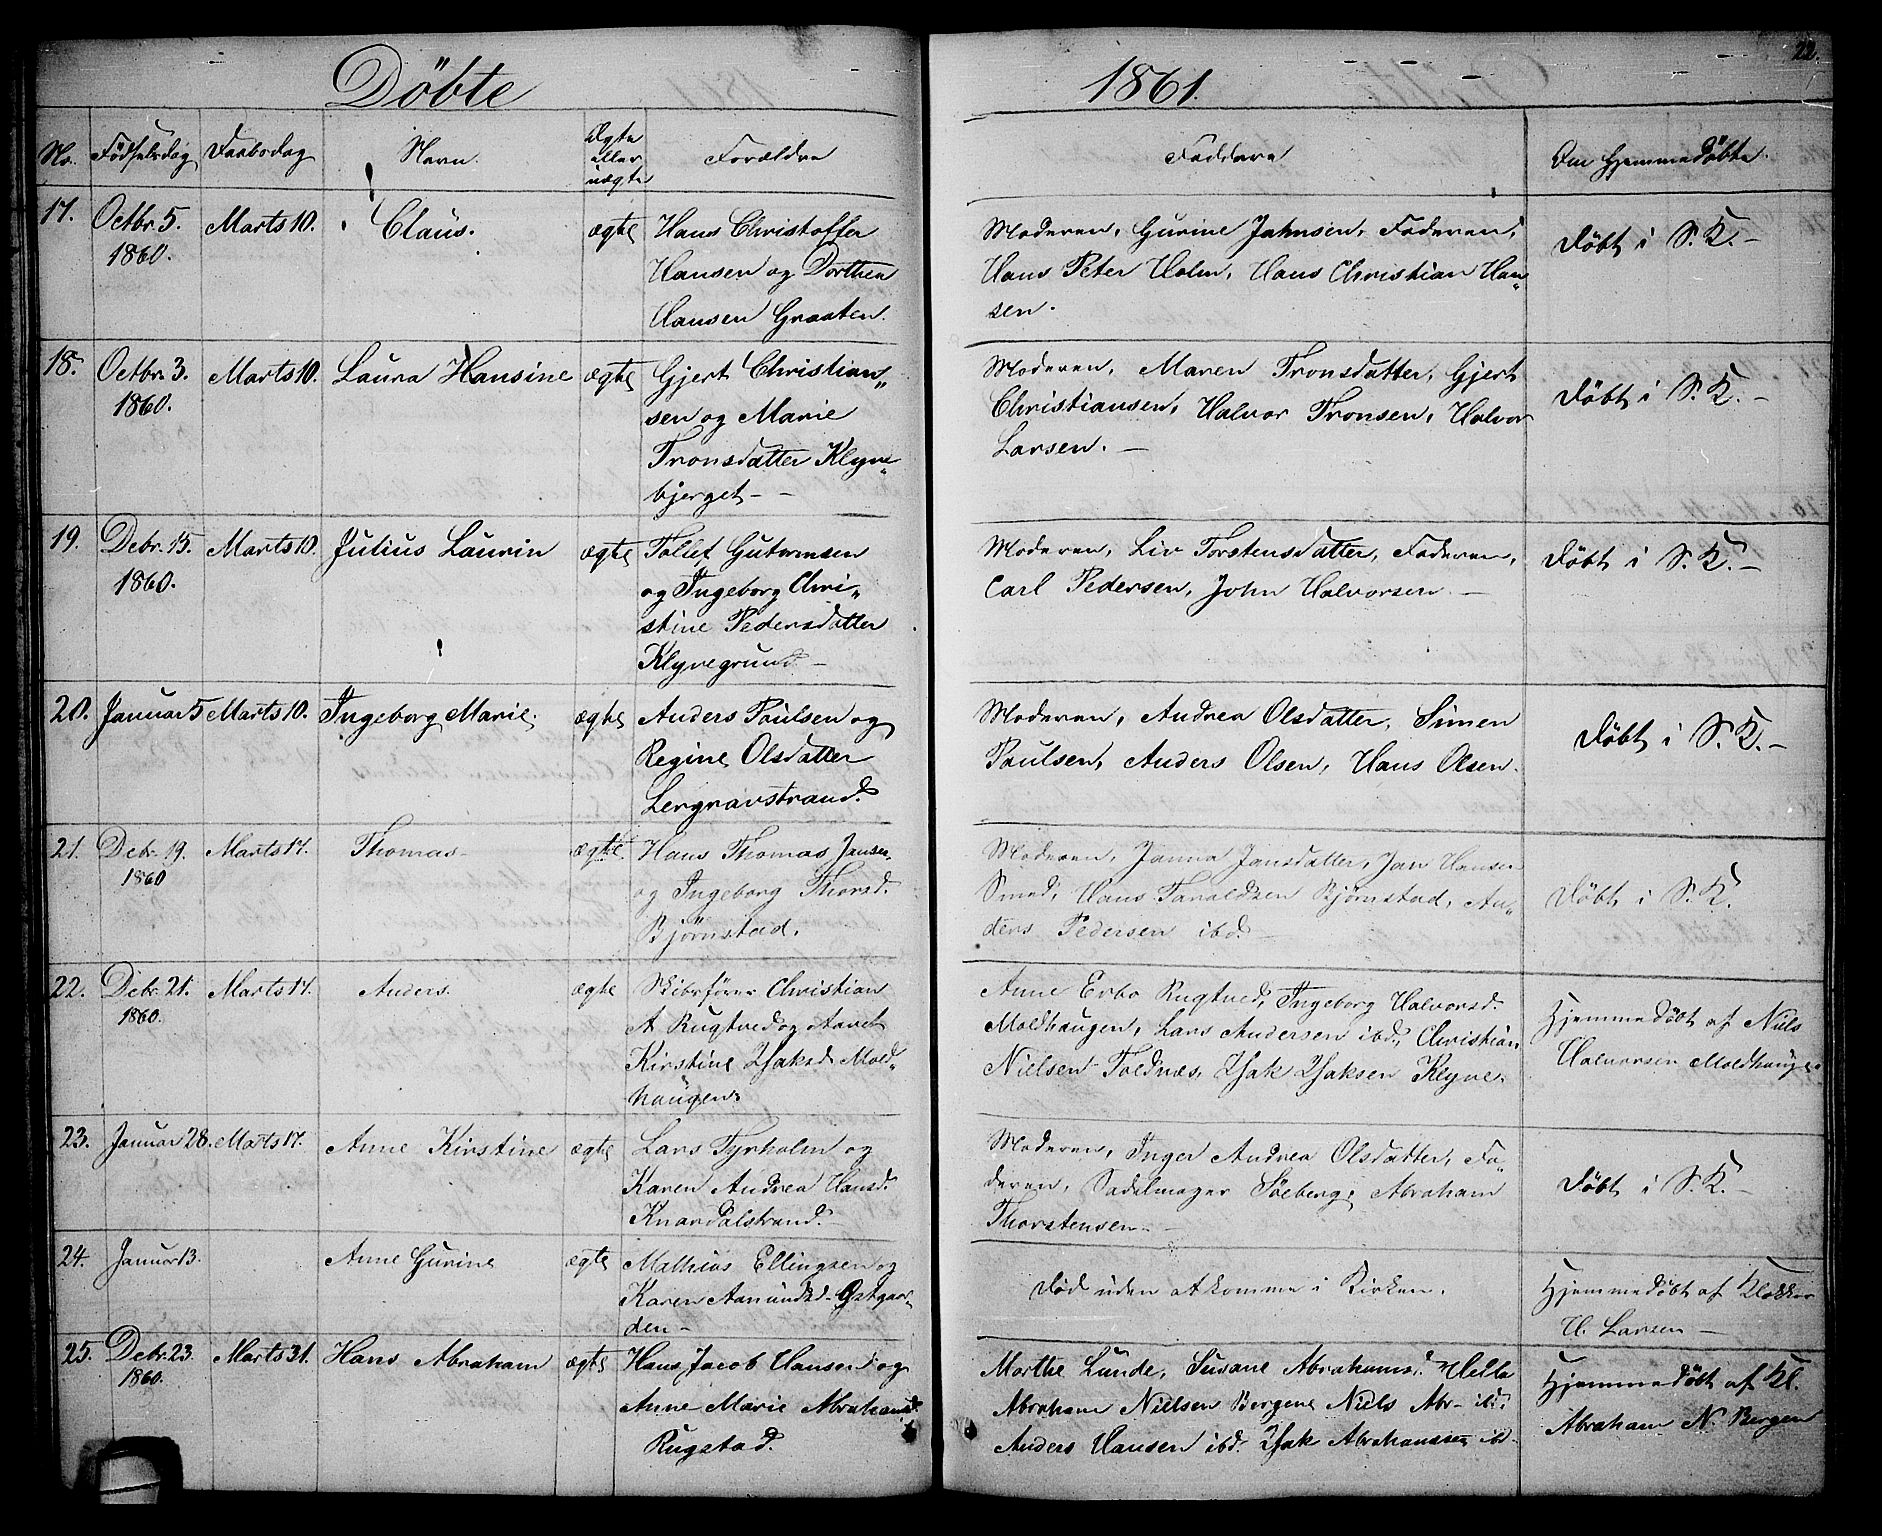 Döbte 1861. 22.
No. Födselsdag Daabsdag Navn. Ægte eller uægte Forældre Faddere Om Hjemmedöbte.
17. Octbr. 5. 1860. Marts 10. Claus. ægte
Hans Christoffer
Hansen og Dorthea
Hansen Graaten.
Moderen, Gurine Jahnsen, Faderen,
Hans Peter Holm, Hans Christian Han„
sen.
Döbt i S. K. –
18. Octbr. 3. 1860. Marts 10. Laura Hansine ægte
Gjert Christian„
sen og Marie
Tronsdatter Klyve„
bjerget –
Moderen, Maren Tronsdatter, Gjert
Christiansen, Halvor Tronsen, Halvor
Larsen. –
Döbt i S. K. –
19. Debr. 15. 1860. Marts 10. Julius Laurin ægte
Tollef Gutormsen
og Ingeborg Chri„
stine Pedersdatter
Klyvegrund –
Moderen, Liv Torstensdatter, Faderen,
Carl Pedersen, John Halvorsen. –
Döbt i S. K. –
20. Januar 5 Marts 10. Ingeborg Marie. ægte
Anders Paulsen og
Regine Olsdatter
Lergravstrand.
Moderen, Andrea Olsdatter, Simen
Paulsen, Anders Olsen, Hans Olsen.
Döbt i S. K. –
21. Debr. 19. 1860 Marts 17. Thomas ægte
Hans Thomas Jansen
og Ingeborg Thorsd.
Björnstad.
Moderen, Janna Jansdatter, Jan Hansen
Smed, Hans Taraldsen Björnstad, An„
ders Pedersen ibd. –
Döbt i S. K.
22. Debr. 21. 1860. Marts 17. Anders. ægte
Skibsförer Christian
A Rugtved og Aavet
Kirstine Isaksd Mold„
haugen.
Anne Erbo Rugtved, Ingeborg Halvorsd.
Moldhaugen, Lars Andersen ibd., Christian
Nielsen Foldnæs, Isak Isaksen Klyve.
Hjemmedöbt af Niels
Halvorsen Moldhaugen
23. Januar 28. Marts 17. Anne Kirstine ægte
Lars Tyrholm og
Karen Andrea Hansd.
Knardalstrand. –
Moderen, Inger Andrea Olsdatter, Fa„
deren, Sadelmager Söeberg, Abraham
Thorstensen –
Döbt i S. K. –
24. Januar 13. Anne Gurine ægte
Mathias Ellingsen og
Karen Aamundsd. Ostgaar„
den –
Död uden at komme i Kirken.
Hjemmedöbt af Klokker
H. Larsen –
25. Debr. 23. 1860. Marts 31. Hans Abraham ægte
Hans Jacob Hansen og
Anne Marie Abrahamsd.
Rugstad.
Marthe Lunde, Susane Abrahamsd. Hella
Abraham Nielsen Bergene Niels Abr– ibd.
Anders Hansen ibd. Isak Abrahamsen ibd–
Hjemmedöbt af Kl.
Abraham N. Bergen